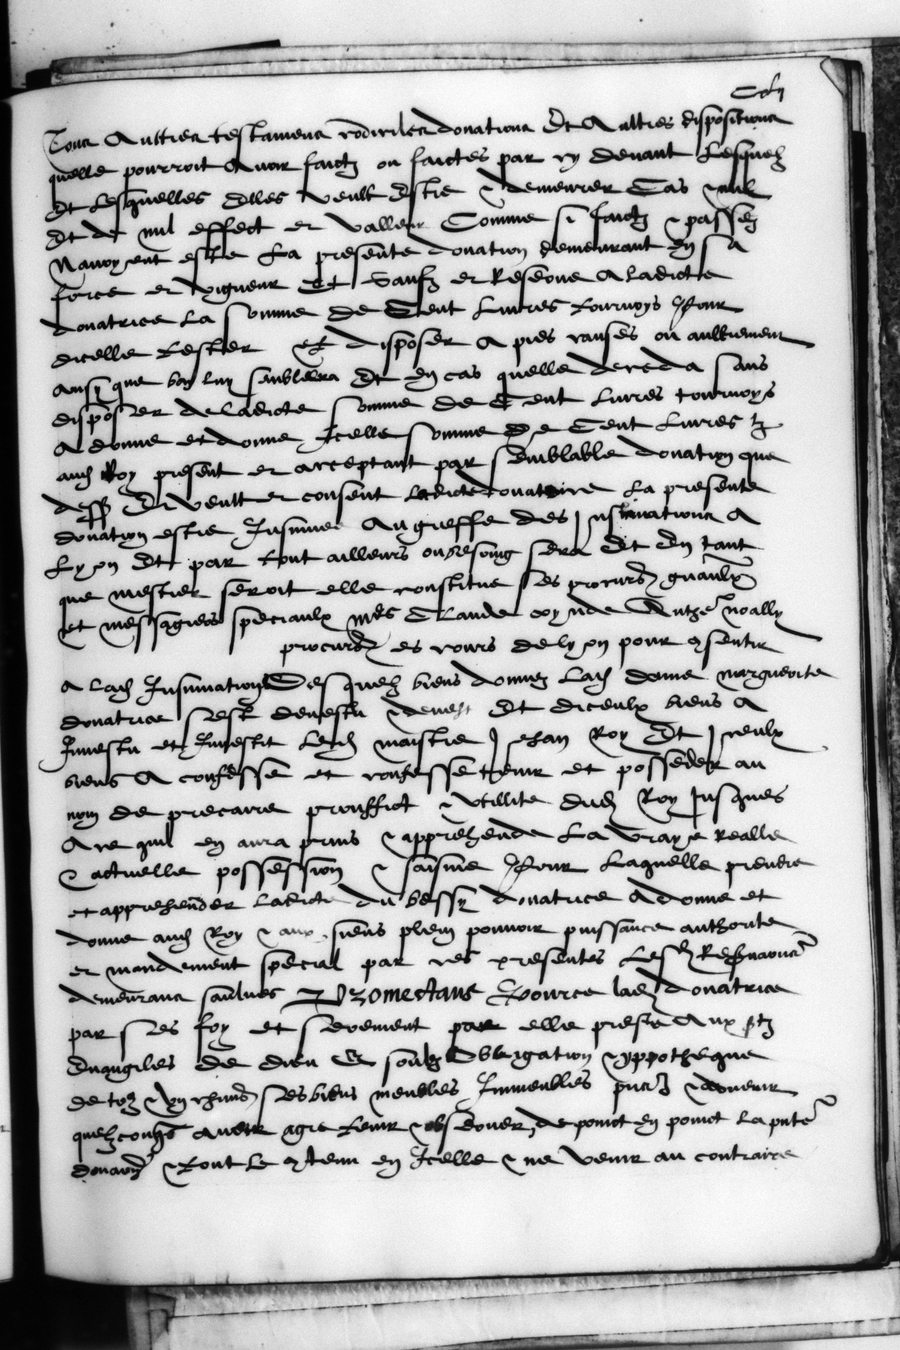 Tous Aultres testamens codicilles donations Et Aultres dispositions
quelle pourroit Avoir faictz ou faictes par cy devant Lesquelz
Et Lesquelles Elles veult Estre & demeurer Cas & nul
Et de nul effect et valleur Comme si faictz & passez
Navoyent este La presente donation demeurant En sa
force et vigueur Et Saufz et Reserve A ladicte
donatrice La somme de Cent Livres tournoys Pour
dicelle tester et disposer A pies causes ou aultrement
Ainsy que bon luy semblera Et En cas quelle deceda sans
disposer de ladicte somme de Cent Livres tournoys
A donne et donne Icelle somme de Cent Livres tz
aud Roy present et acceptant par semblable donation que
dess Et veult et consent ladicte donatrice La presente
donation estre Insinuee Au greffe des Insinuations A
Lyon Et par tout ailleurs ou besoing sera Et En tant
que mestier seroit elle constitue ses procurs gnaulx
et messagiers speciaulx mes Claude
procurs es cours de lyon pour consentir
A lad Insinuation Desquelz biens donnez Lad dame marguerite
donatrice sest devestu & devest Et diceulx biens A
Investu et Investit Led maistre Jehan Roy Et Iceulx
biens A confesse et confesse tenir et posseder au
nom de precaire prouffict & utillite dud Roy Jusques
A ce quil en aura prins & apprehende La vraye Realle
& actuelle possession & saisine Pour Laquelle prendre
et apprehender ladicte du bessy donatrice A donne et
donne aud Roy & aux siens plein pouvoir puissance authorite
et mandement special par ces presentes Les
demeurans saulves Promectans Lad donatrice
par ses foy et serement par elle preste Aux stz
Evangiles de dieu & soubz Obligation & yppotheque
de tous & ungs chuns ses biens meubles Immeubles pntz & advenir
quelzconqs Avoir agre tenir & observer de poinct en poinct La pnte
donaon & tout le contenu en Icelle & ne venir au contraire